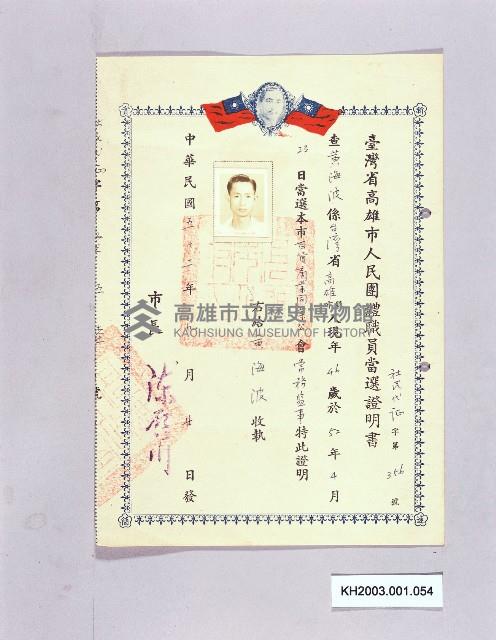 臺灣省高雄市人民團體職員當選證明書
社民代証字第356號
查黃海波係台灣省高雄市人現年46歲於52年4月
23日當選本市商業同業公會常務監事特此證明
右給黃海波收執
市長
中華民國五十二年 月廿日發
高雄市立歷史博物館
KAOHSIUNG MUSEUM OF HISTORY
KH2003.001.054